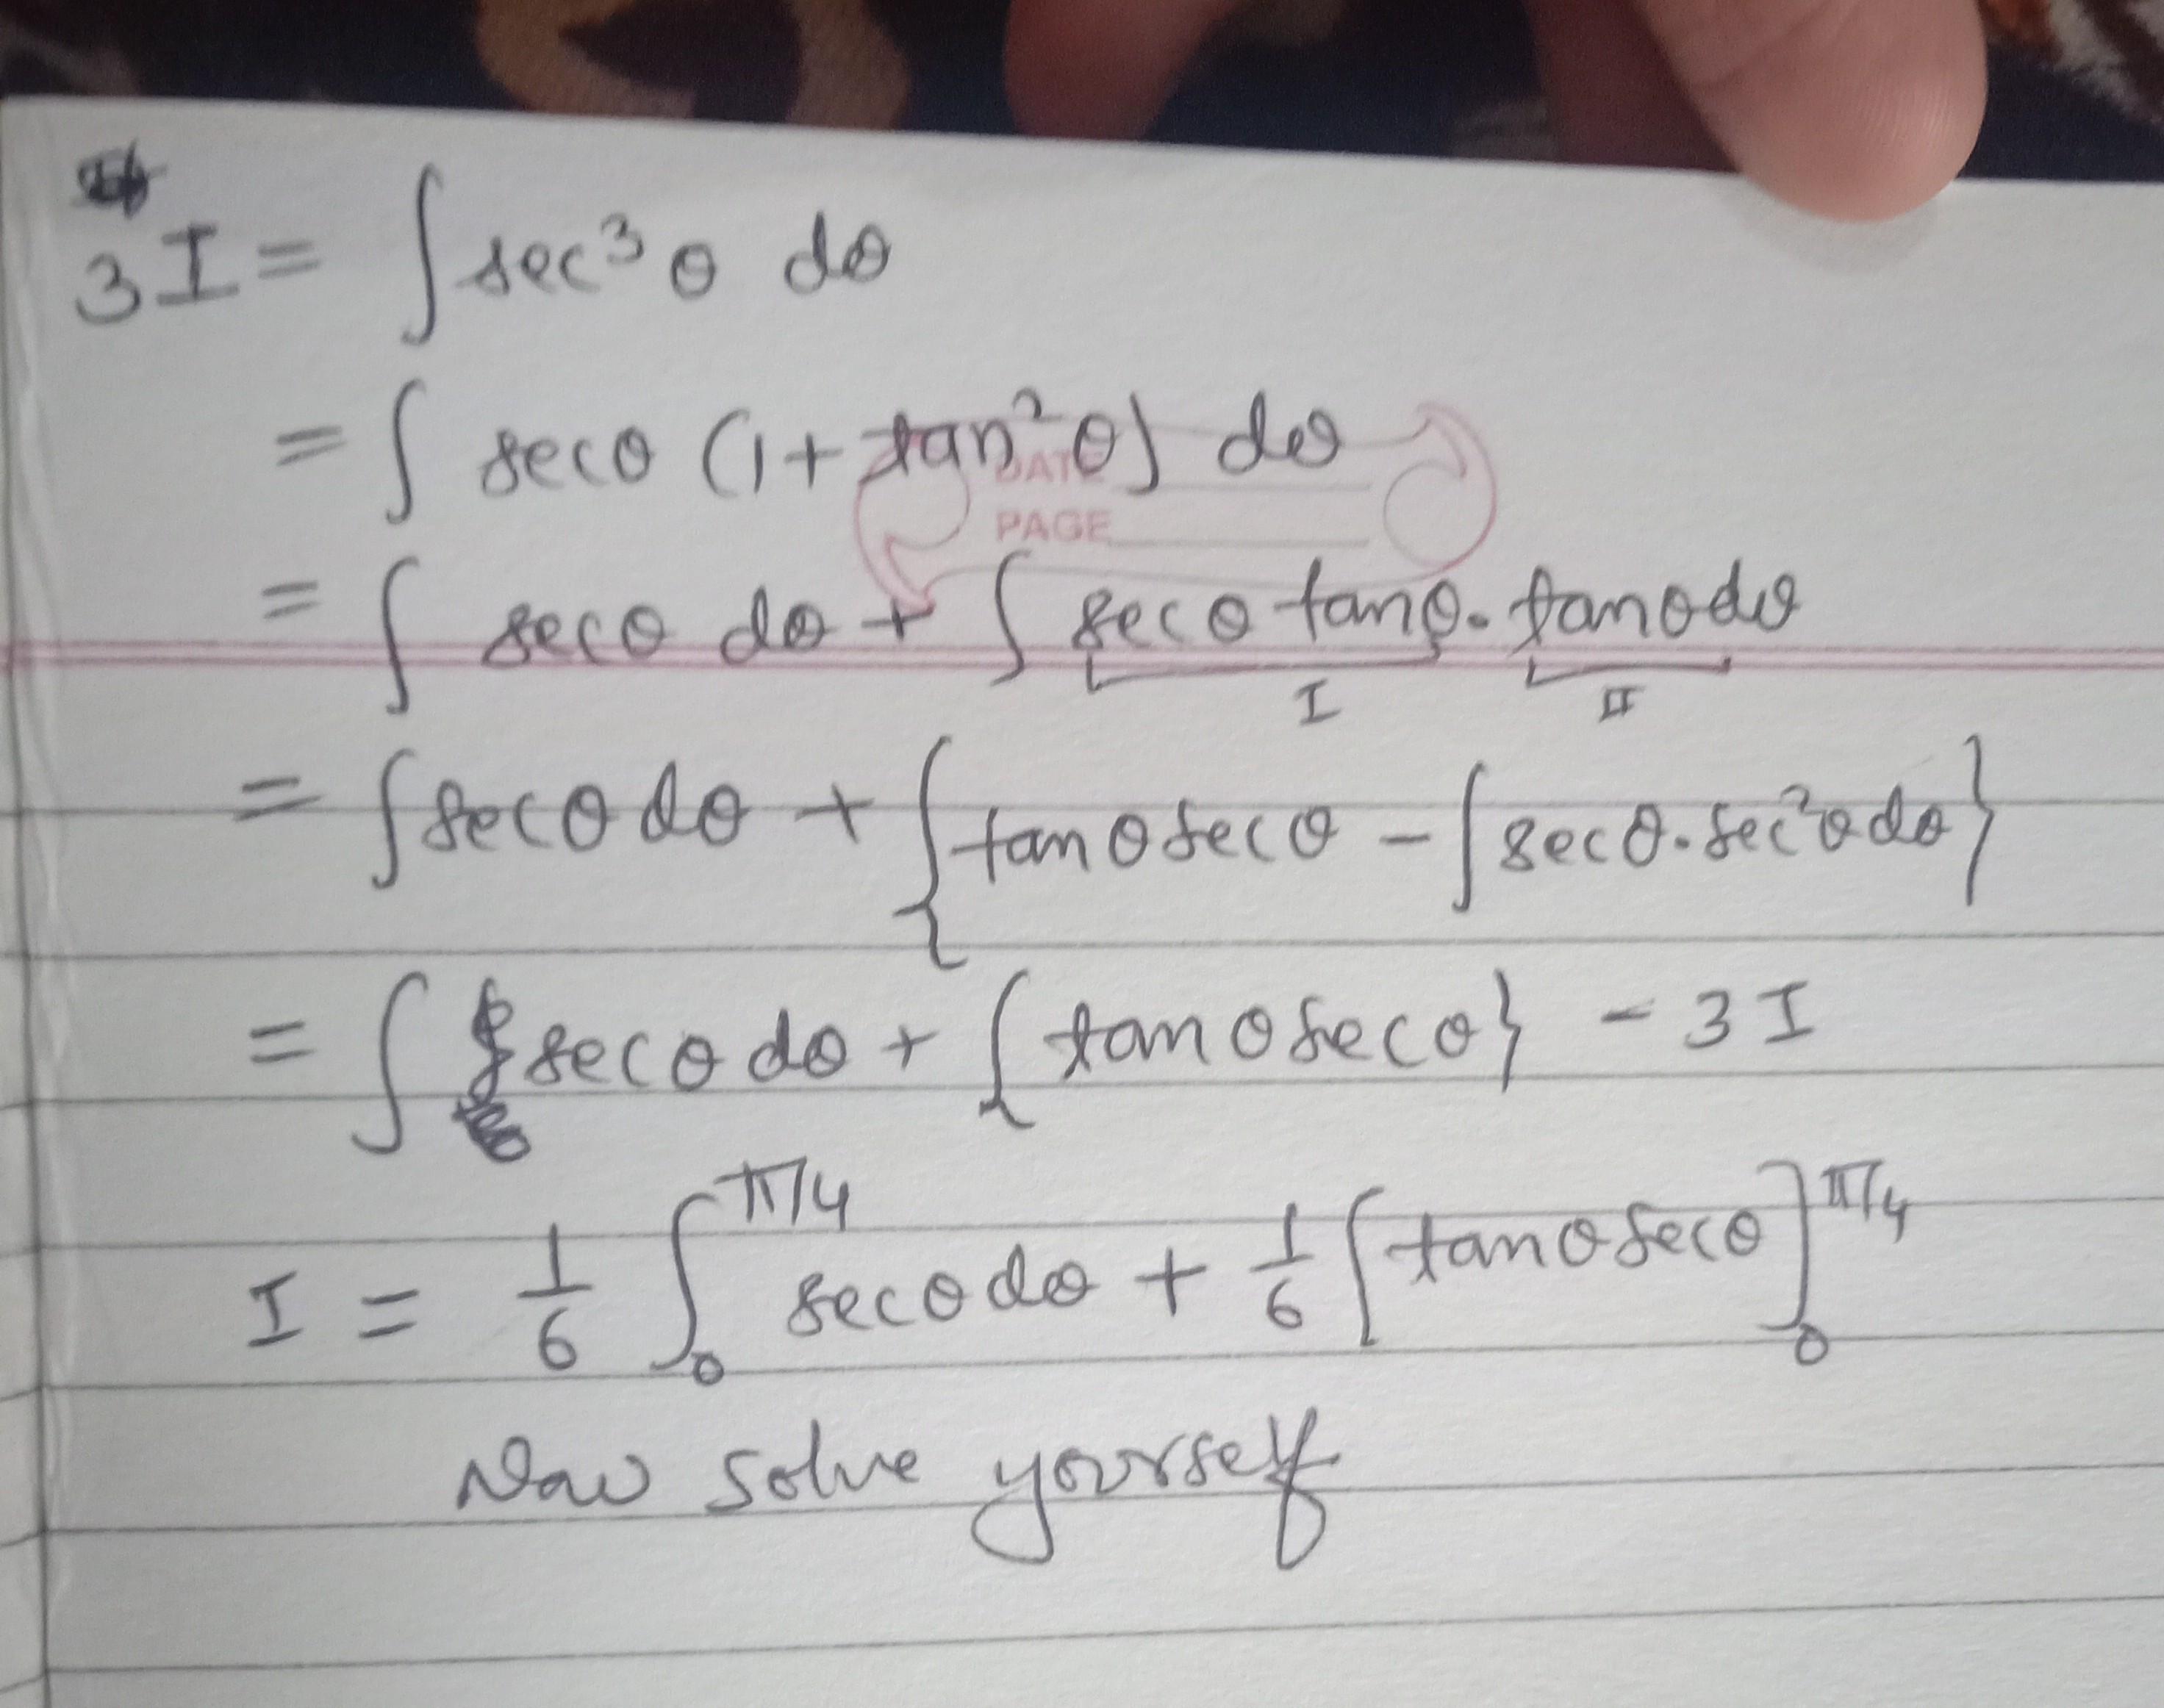 3I = ∫ sec³θ dθ
= ∫ secθ (1 + tan²θ) dθ
DATE
PAGE
= ∫ secθ dθ + ∫ secθ tanθ . tanθ dθ
I II
= ∫ secθ dθ + { tanθ secθ - ∫ secθ . sec²θ dθ }
= ∫ secθ dθ + { tanθ secθ } - 3I
I = 1/6 ∫₀^π/4 secθ dθ + 1/6 [ tanθ secθ ]₀^π/4
Now solve yourself